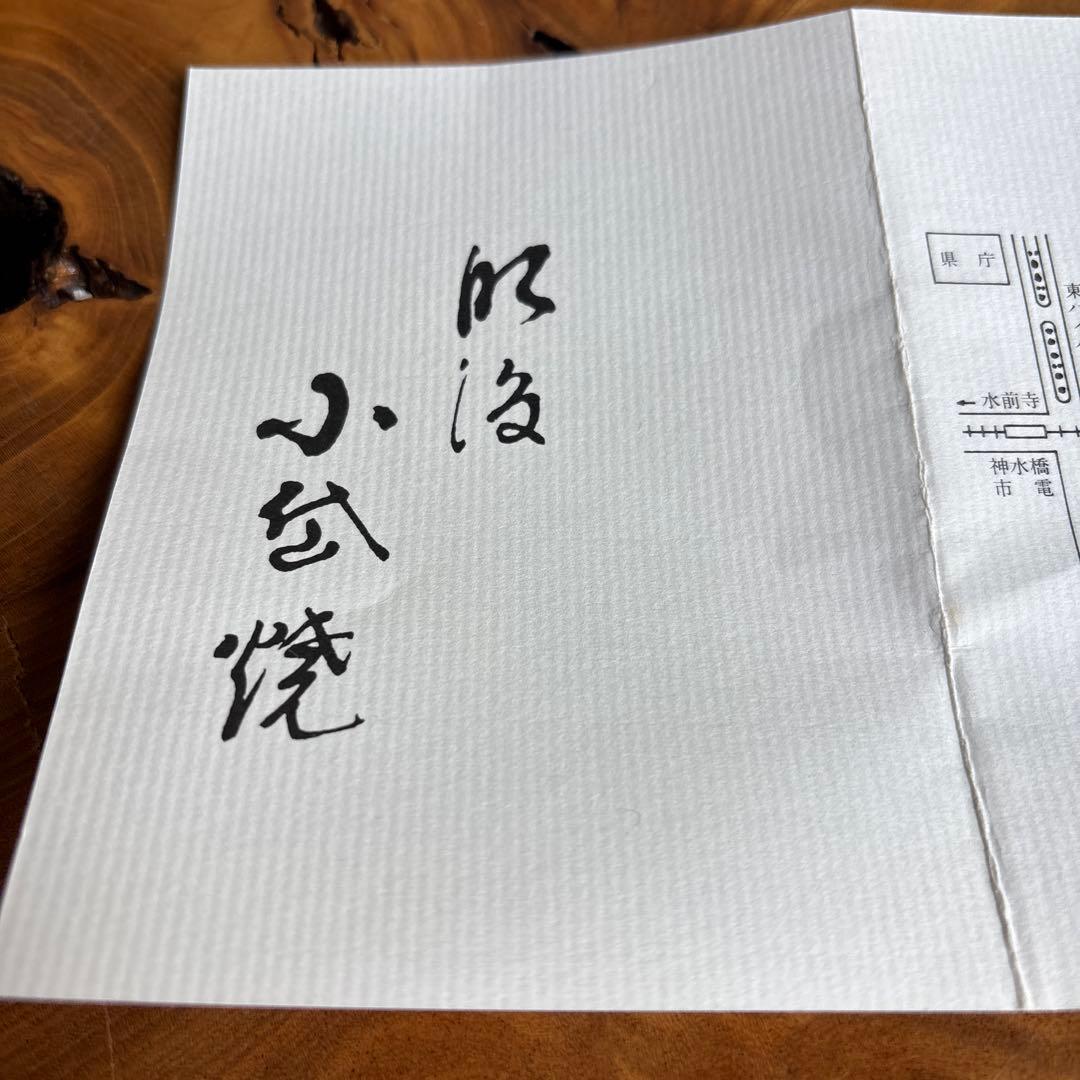 肥後
小岱焼
県庁
←水前寺
神水橋
市電
東バイパス